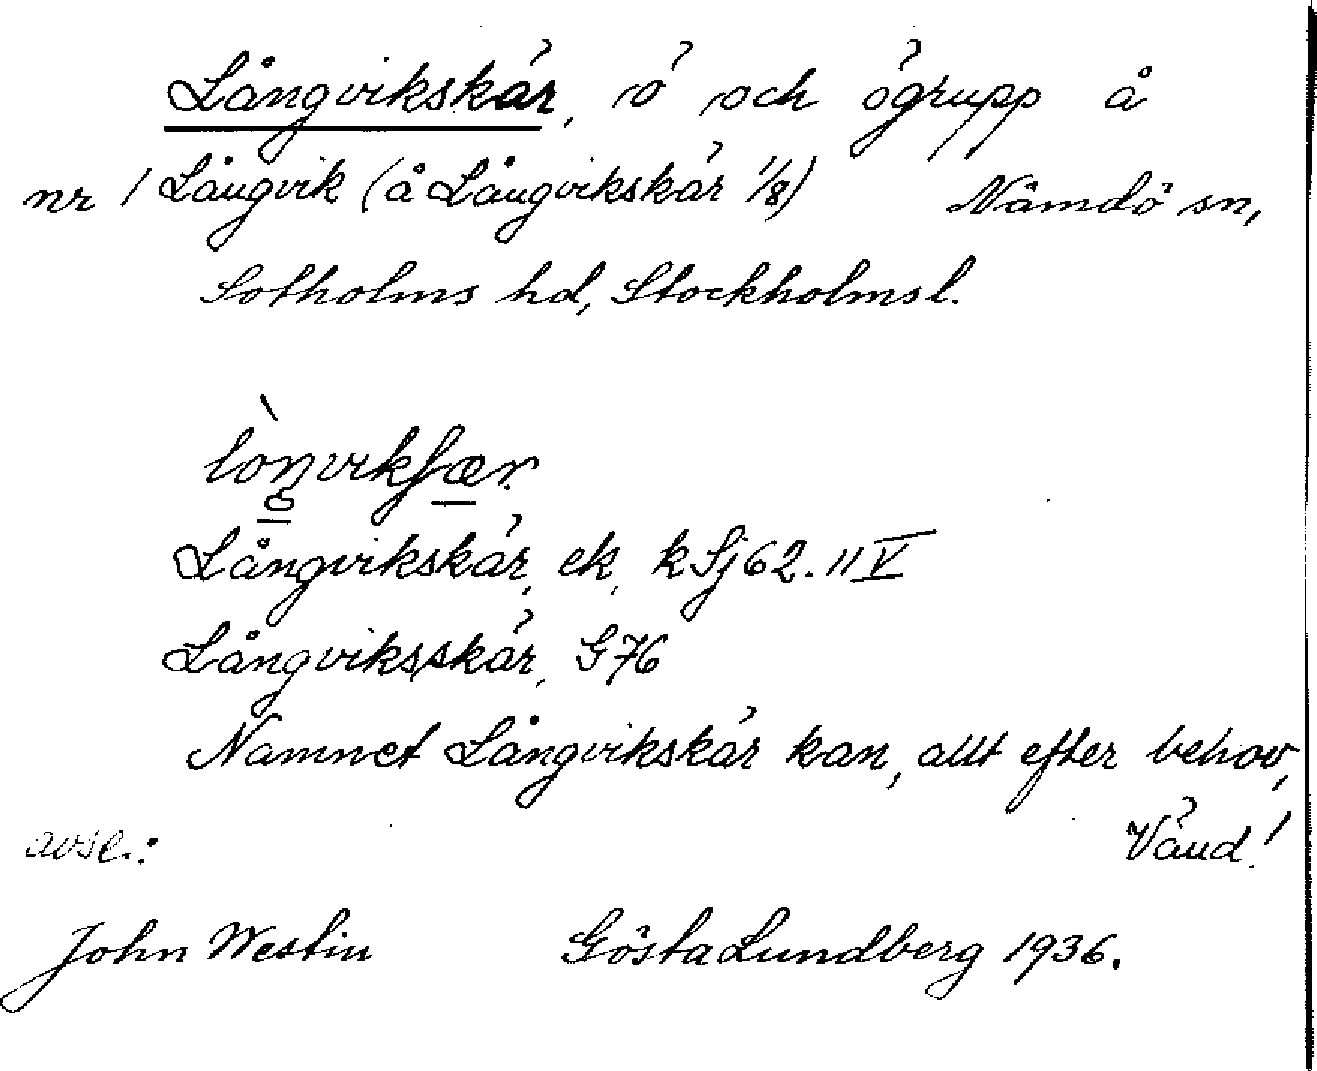 Långvikskär, ö och ögrupp å
nr 1 Långvik (å Långvikskär 1/8) Nämdö sn,
Sotholms hd, Stockholms l.
Långvikskär, ek, k Sj 62. II V
Långviksskär, G 76
Namnet Långvikskär kan, allt efter behov,
avse.: Vänd!
John Westin Gösta Lundberg 1936.